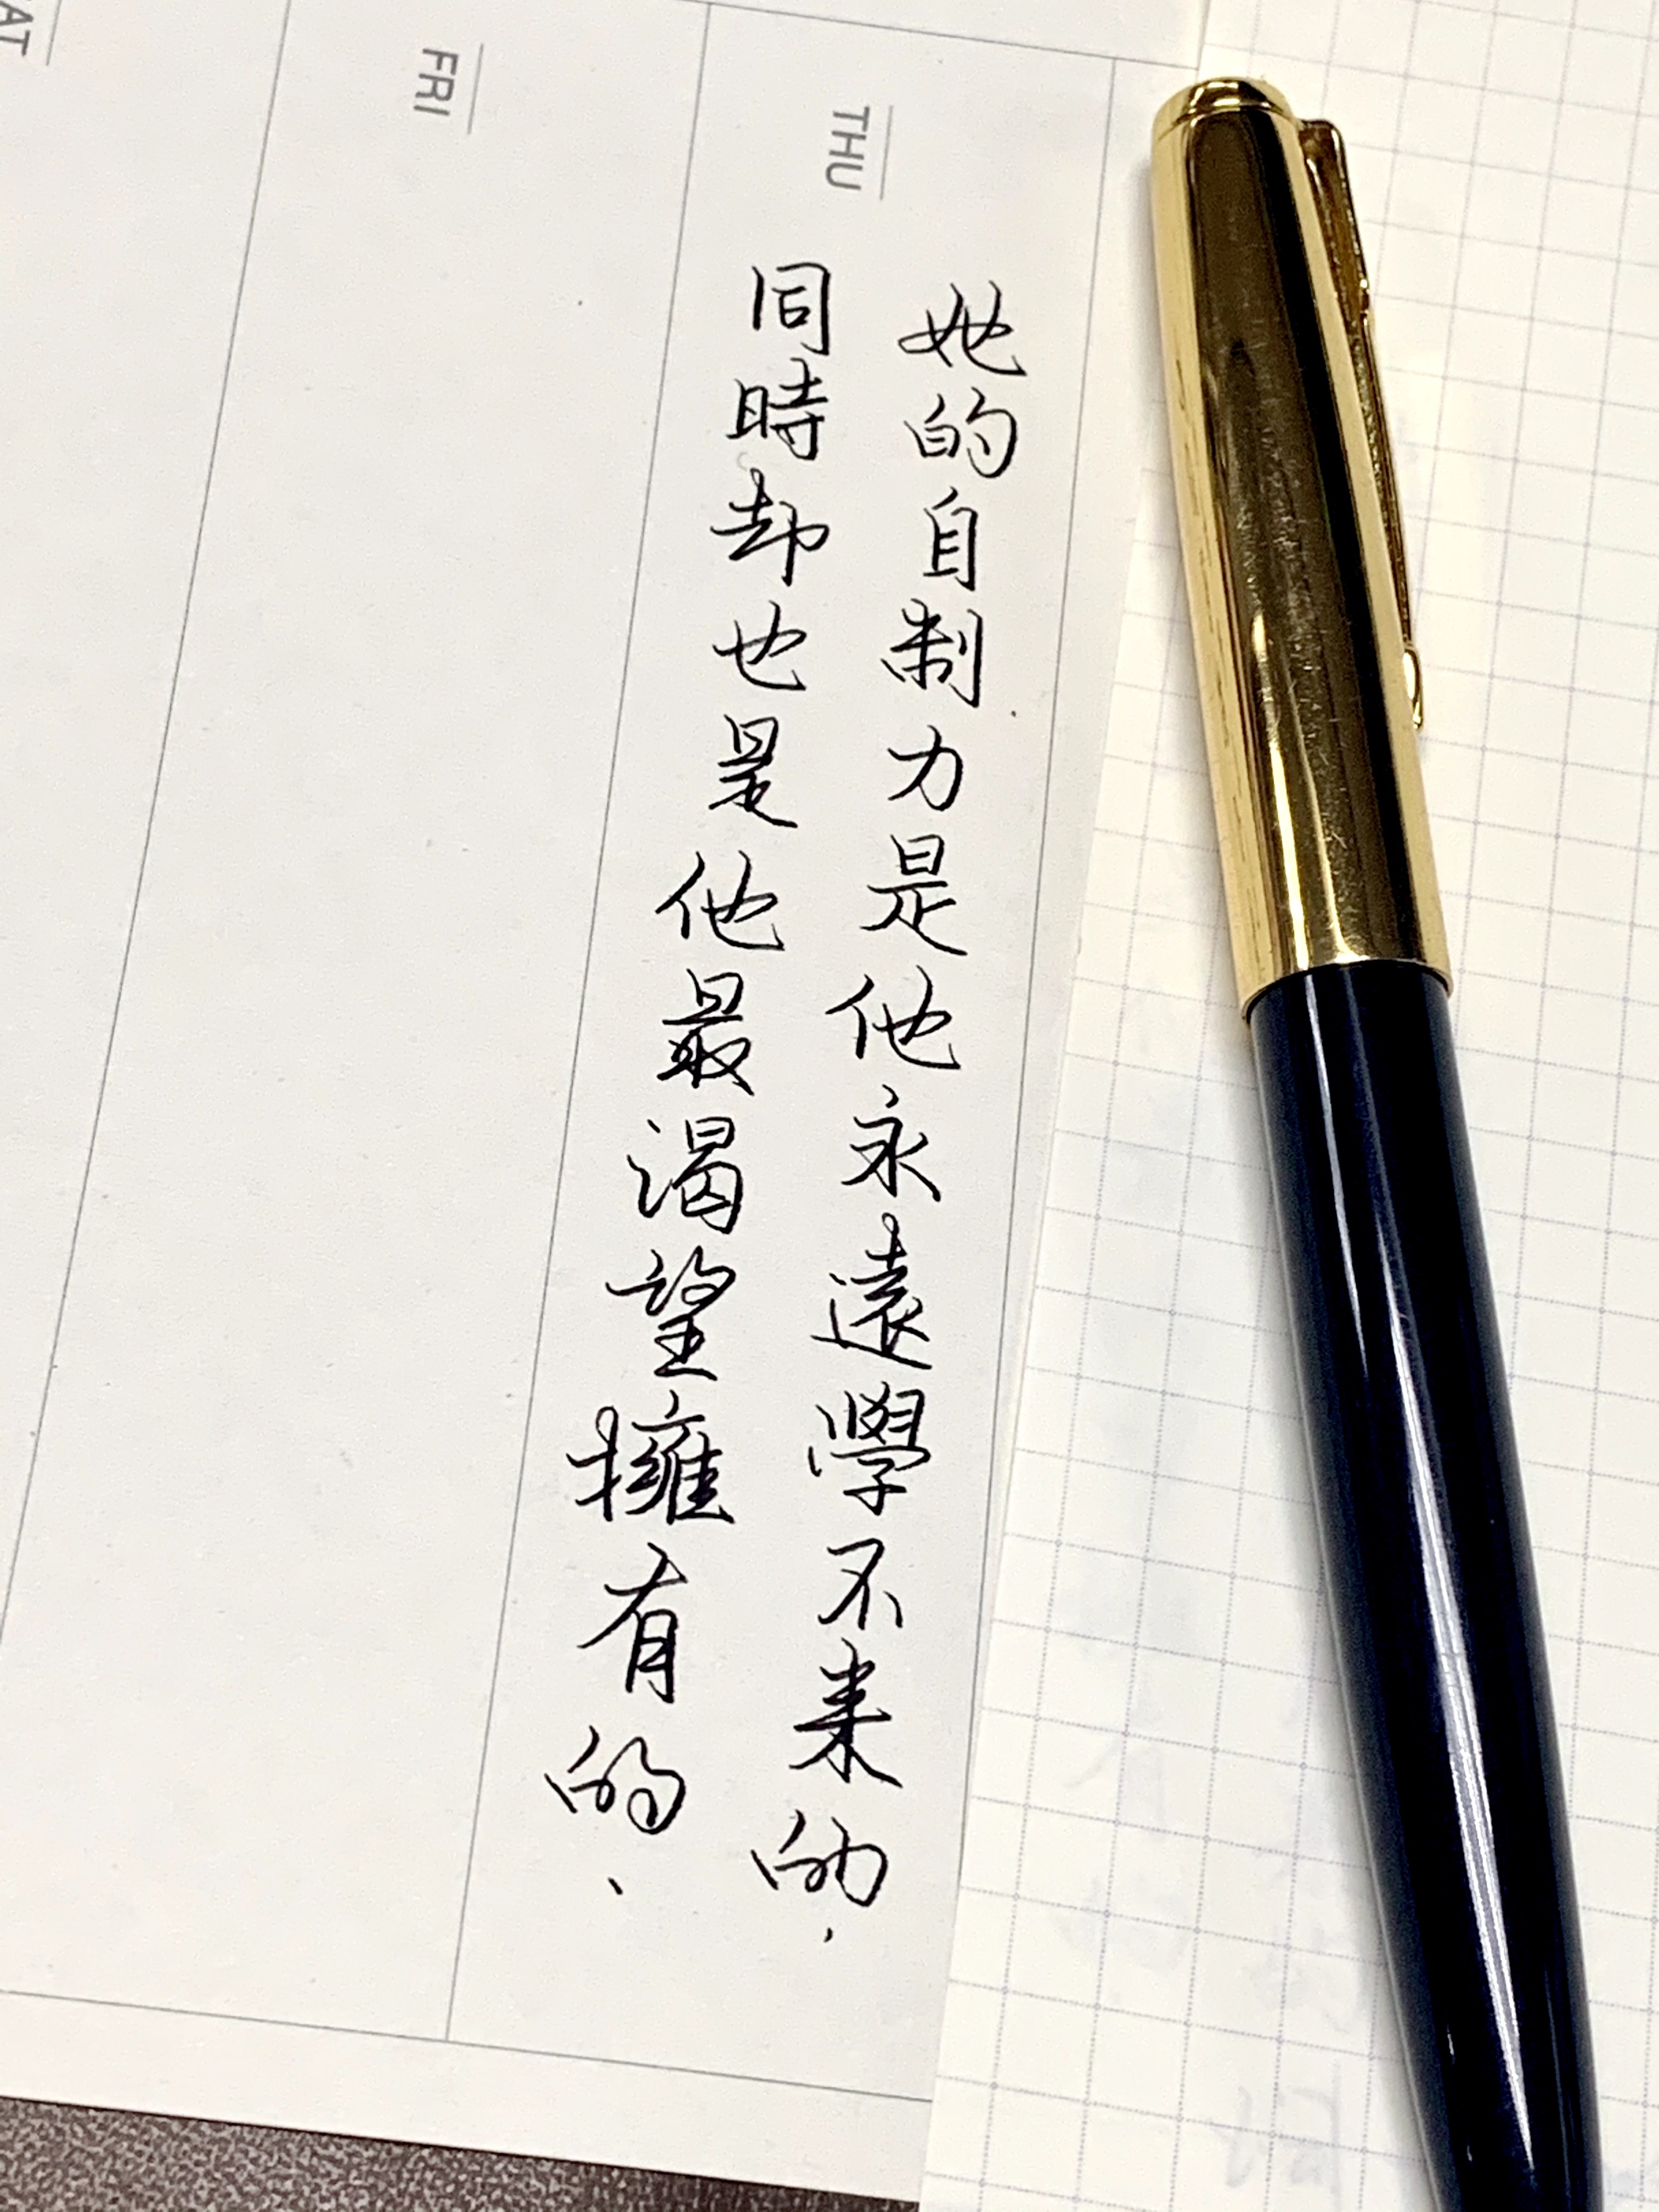 THU
她的自制力是他永遠學不來的.
同時却也是他最渴望擁有的.
FRI